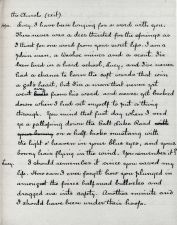 the Church (exit).
Lucy I have been longing for a word with you.
There never was a deer thirsted for the springs as
I think for one word from your sweet lips. I am a
plain man, a Quaker miner and a scout. I've
been bred in a hard school, Lucy, and I've never
had a chance to learn the soft words that win a
girl's heart, but I'm a man that never yet
went back from his word and never yet backed
down when I had set myself to put a thing
through. You mind that first day when I seed
ye a galloping down the Salt Lake Road
on a half broke mustang with
the light o' heaven in your blue eyes, and your
bonny hair flying in the wind. You remember it?
Lucy. I should remember it since you saved my
life. How can I ever forget how you plunged in
amongst the fierce bullocks and
dragged me into safety. Another minute and
I should have been under their hoofs.